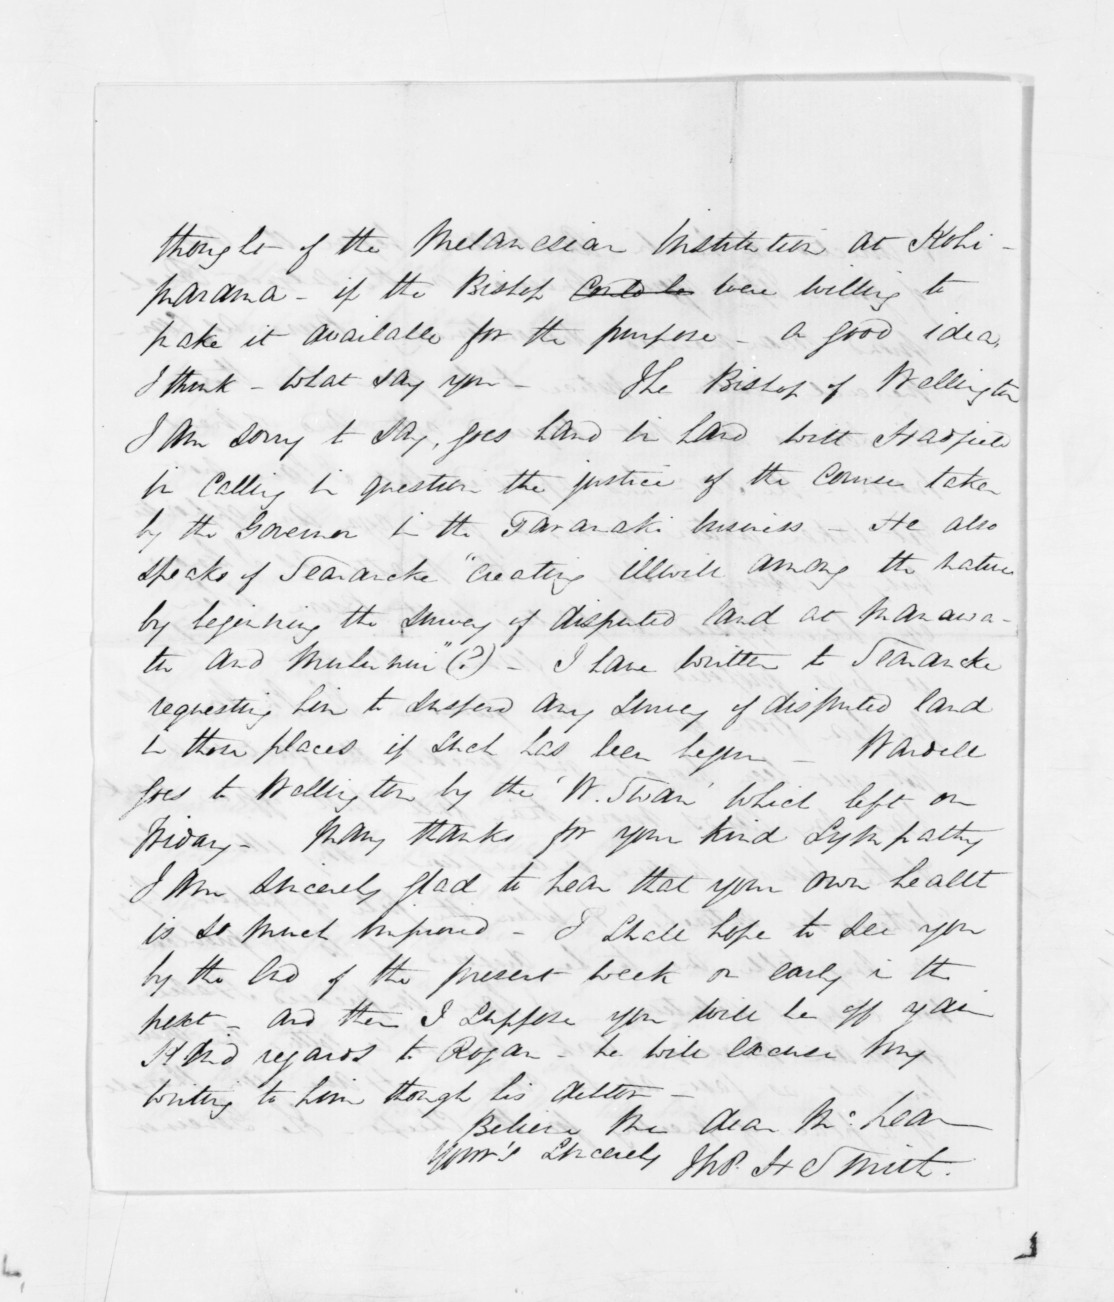 thought of the Melanesian Institution at Kohi-
marama - if the Bishop could be were willing to
make it available for the purpose - a good idea,
I think - what say you - The Bishop of Wellington
I am sorry to say, goes hand in hand with Hadfield
in calling in question the justice of the course taken
by the Governor in the Taranaki business - He also
speaks of Searancke "creating illwill among the natives
by beginning the survey of disputed land at Manawa-
tu and" (?) - I have written to Searancke
requesting him to suspend any survey of disputed land
in those places if such has been begun - Wardell
goes to Wellington by the 'W. Swan' which left on
Friday - Many thanks for your kind sympathy
I am sincerely glad to hear that your own health
is so much improved - I shall hope to see you
by the end of the present week or early in the
next - and then I suppose you will be off again
Kind regards to Rogan - he will excuse my
writing to him though his debtor -
Believe me dear McLean
Your's sincerely Thos. H Smith.